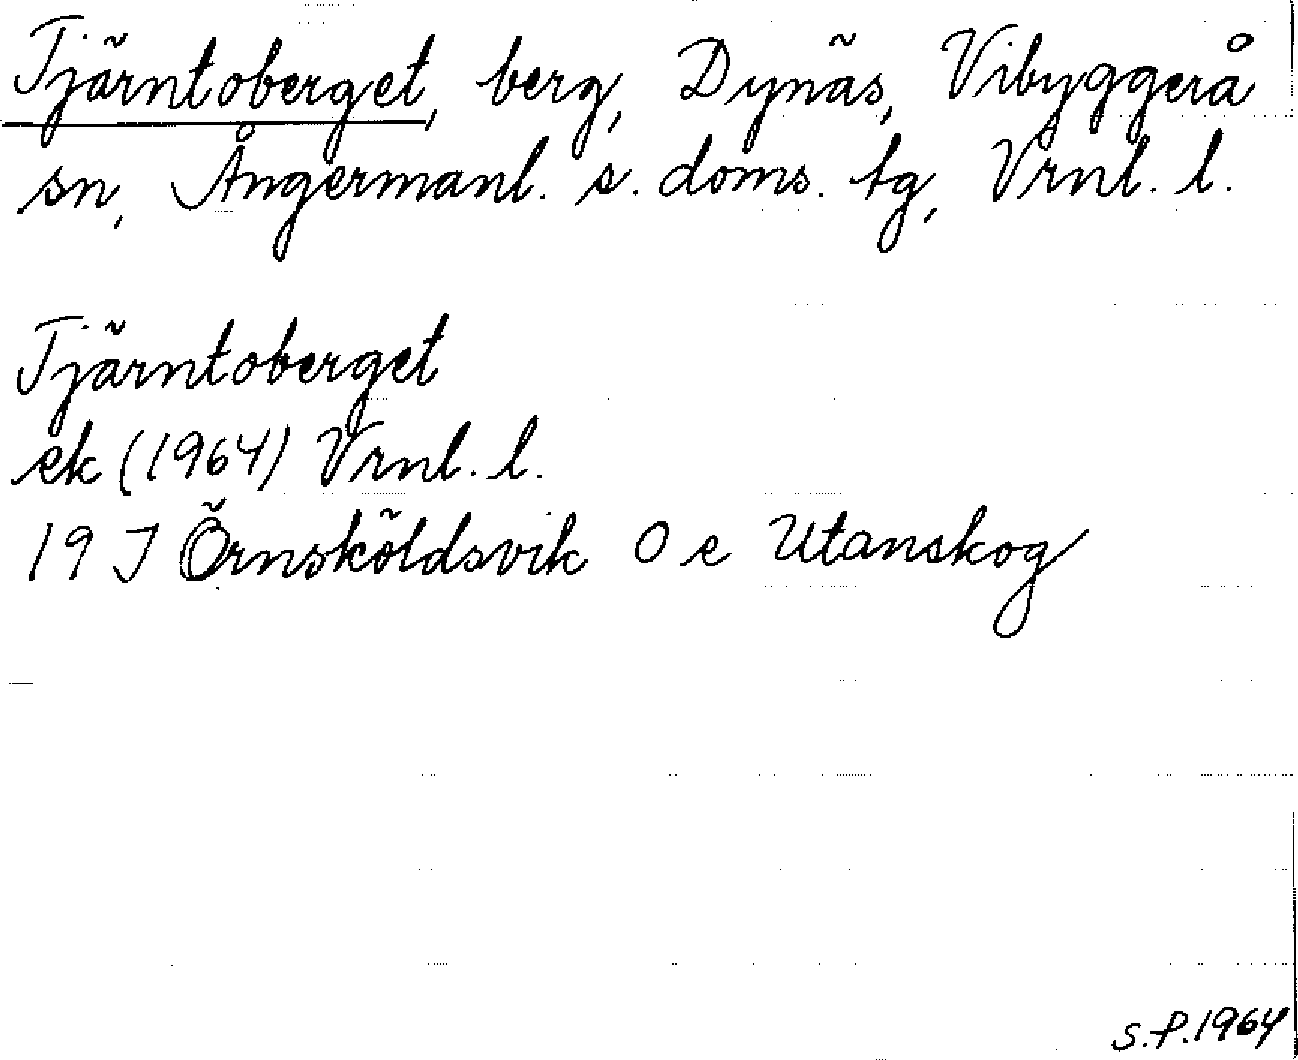 Tjärntoberget, berg, Dynäs, Vibyggerå
sn, Ångermanl. s. doms. tg, Vrnl. l.
Tjärntoberget
ek (1964) Vrnl. l.
19 J Örnsköldsvik 0 e Utanskog
S.P. 1964